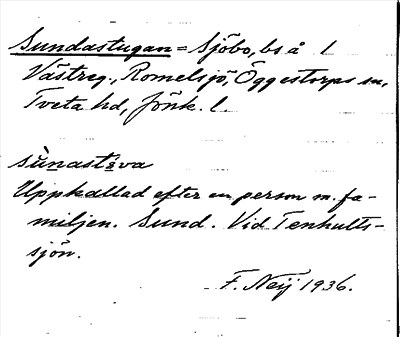 Sundastugan = Sjöbo, bs å 1
Västreg., Romelsjö, Öggestorps sn,
Tveta hd, Jönk. l.
sùnastsva
Uppkallad efter en person m. fa-
miljen. Sund. Vid Tenhults-
sjön.
F. Neij 1936.